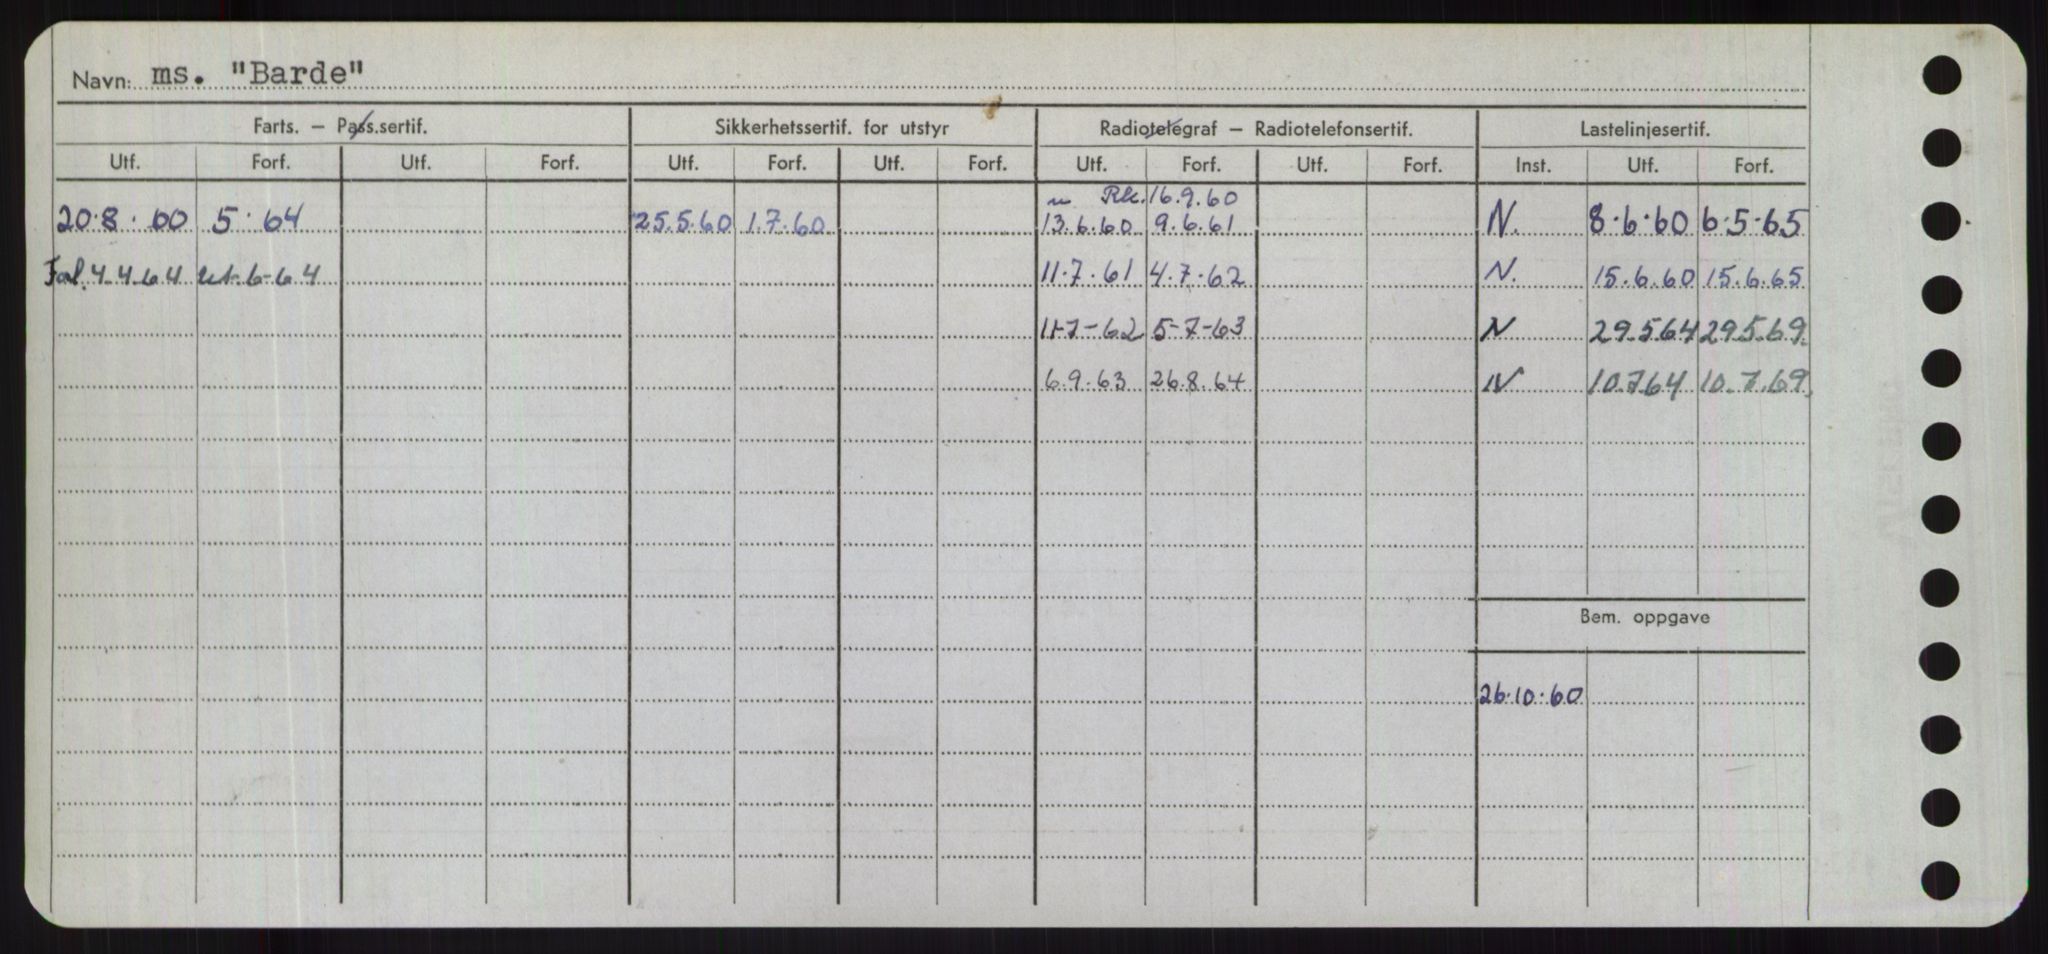 Navn: ms. "Barde"
Farts. — Pass.sertif. Sikkerhetssertif. for utstyr Radiotelegraf — Radiotelefonsertif. Lastelinjesertif.
Utf. Forf. Utf. Forf. Utf. Forf. Utf. Forf. Utf. Forf. Utf. Forf. Inst. Utf. Forf.
Rk. 16.9.60
20.8.60 5.64 25.5.60 1.7.60 13.6.60 9.6.61 N. 8.6.60 6.5.65
4.4.64 6-64 11.7.61 4.7.62 N. 15.6.60 15.6.65
11-7-62 5-7-63 N 29.5.64 29.5.69
6.9.63 26.8.64 N 10.7.64 10.7.69
Bem. oppgave
26.10.60